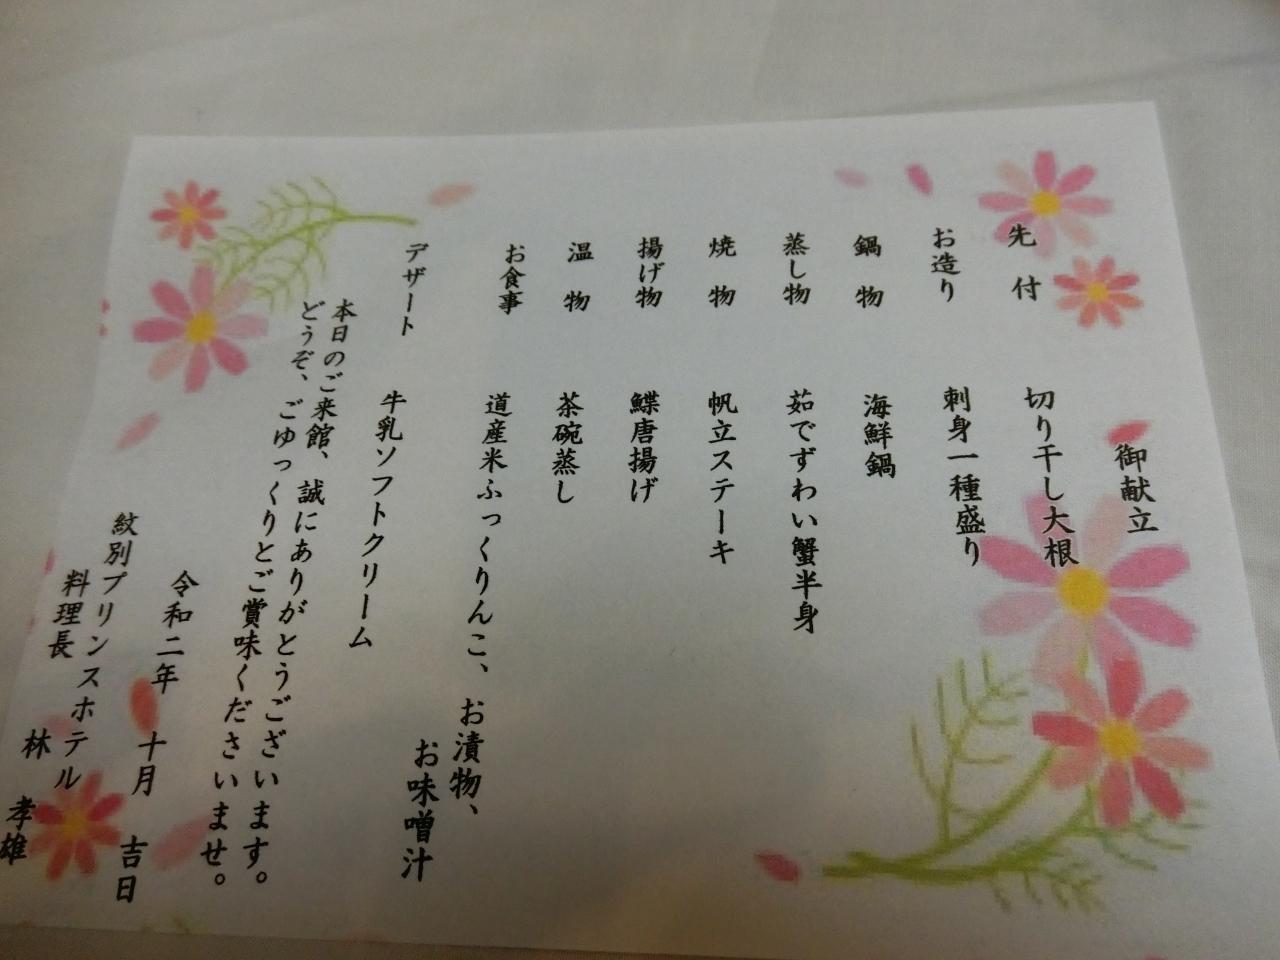 御献立
先付 切り干し大根
お造り 刺身一種盛り
鍋物 海鮮鍋
蒸し物 茹でずわい蟹半身
焼物 帆立ステーキ
揚げ物 鰈唐揚げ
温物 茶碗蒸し
お食事 道産米ふっくりんこ、お漬物、
お味噌汁
デザート 牛乳ソフトクリーム
本日のご来館、誠にありがとうございます。
どうぞ、ごゆっくりとご賞味くださいませ。
令和二年 十月 吉日
紋別プリンスホテル
料理長 林 孝雄